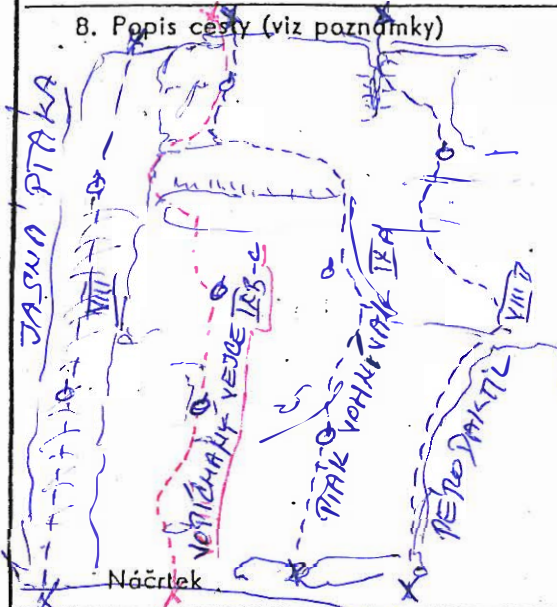 8. Popis cesty (viz poznámky)
JASNÁ PTÁKA
VIII
VOPIČMANÝ VEJCE IXB-C
PTÁK VOHNIVÁK IXA
PÉRODAKTIL VIII
Náčrtek